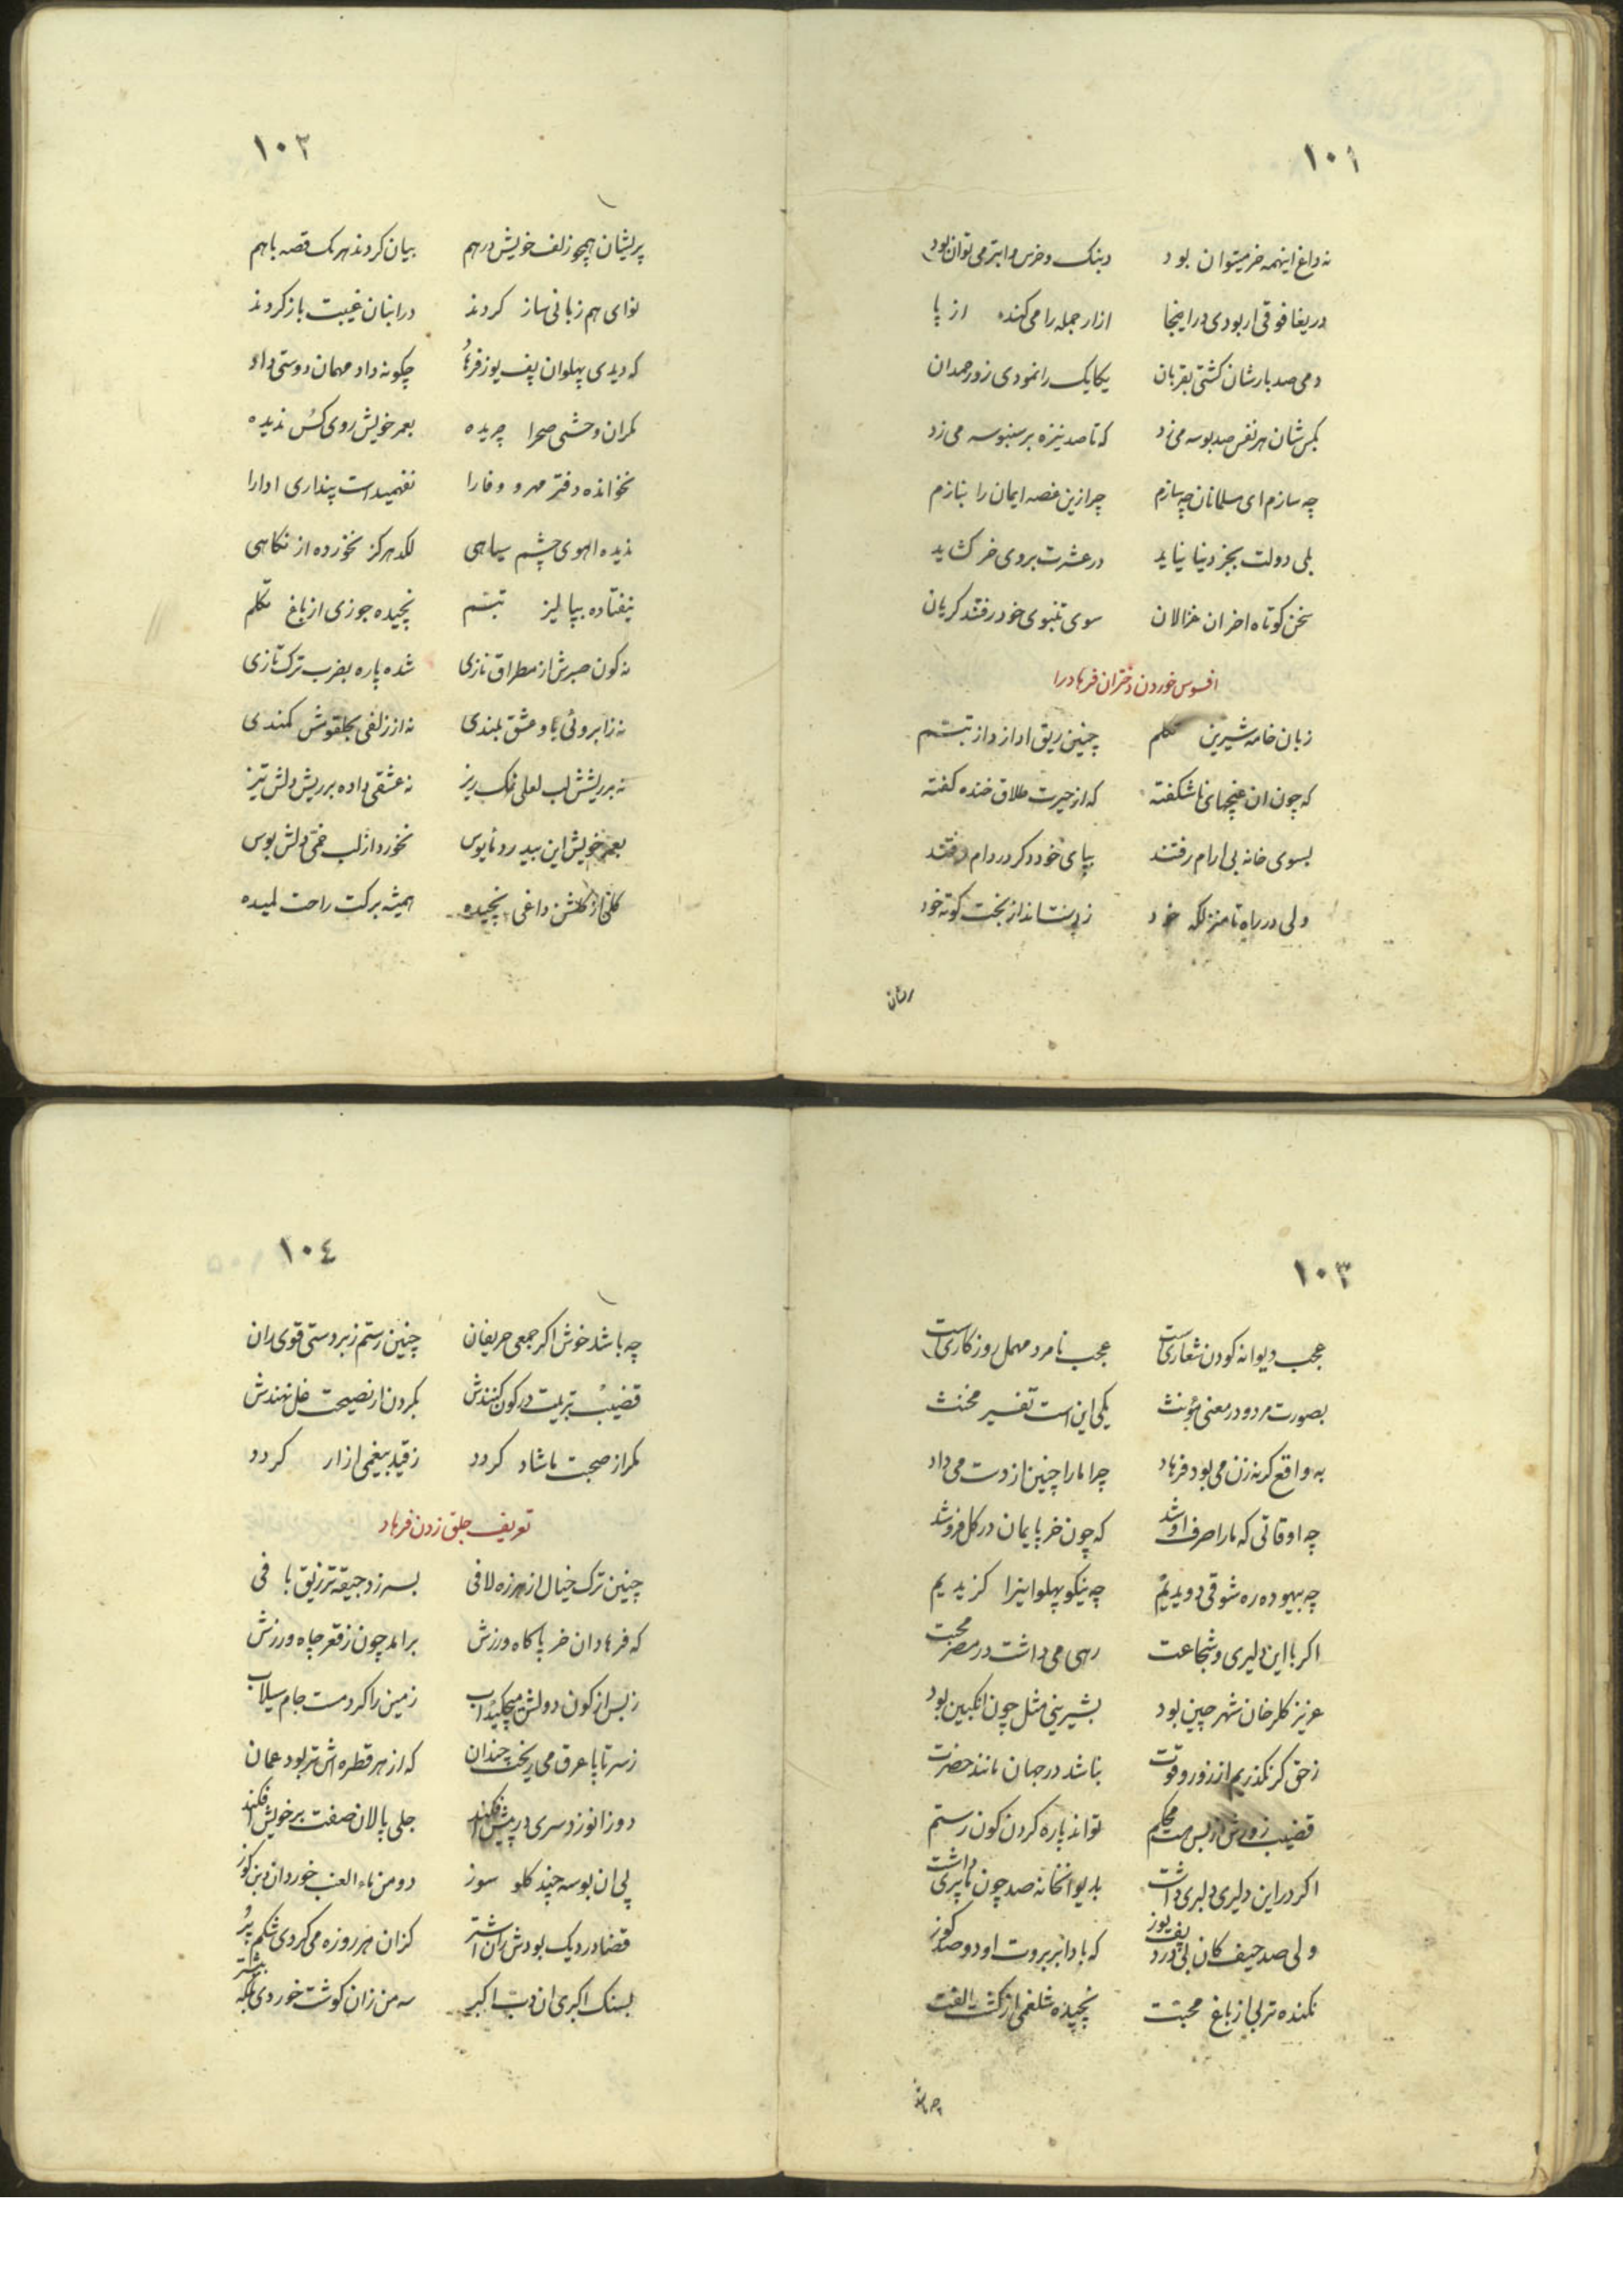 ١٠١
نه داغ اینهمه خر میتوان بود دبنک و خرس و ابتر می توان بود
دریغا فوقی ار بودی در اینجا ازار جمله را می کنده از پا
دمی صد بارشان کشتی بقربان یکایک را نمودی زور حمدان
بکس شان هر نفس صد بوسه می زد که تا صد نیزه بر سنبوسه می زد
چه سازم ای مسلمانان چه سازم چرا زین غصه ایمان را نبازم
بلی دولت بجز دنیا نیاید در عشرت بروی خر کشاید
سخن کوتاه اخر ان غزالان سوی تنبوی خود رفتند کریان
افسوس خوردن دختران فرهاد را
زبان خامه شیرین تکلم چنین ریق ادا زد از تبسم
که چون ان غنچهای ناشکفته که از حیرت طلاق خنده کفته
بسوی خانه بی ارام رفتند بپای خود دکر در دام رفتند
ولی در راه تا منزلکه خود ز بخت کوته خود
١٠٢
پریشان همچو زلف خویش درهم بیان کردند هر یک قصه باهم
نوای هم زبانی ساز کردند در انبان غیبت باز کردند
که دیدی پهلوان پف یوز فرهاد چکونه داد مهمان دوستی داد
مکر ان وحشی صحرا چریده بعمر خویش روی کس ندیده
نخوانده دفتر مهر و وفا را نفهمیداست پنداری ادا را
ندیده اهوی چشم سیاهی لکد هرکز نخورده از نکاهی
نیفتاده بپالیز تبسم نچیده جوزی از باغ تکلم
نه کون صبرش از مطراق نازی شده پاره بضرب ترک تازی
نه ز ابروئی باو عشق بلندی نه از زلفی بحلقومش کمندی
نه بر ریشش لب لعلی نمک ریز نه عشقی داده بر ریش دلش تیز
بعمر خویش این بیدرد مایوس نخورد از لب خمی دلش بوس
کلی از کلشن داغی نچیده همیشه برکت راحت لمیده
١٠٣
عجب دیوانه کودن شعاریست عجب نامرد مهمل روزکاریست
بصورت مرد و در معنی مؤنث یکی این است تفسیر مخنث
به واقع کرنه زن می بود فرهاد چرا مارا چنین از دست می داد
چه اوقاتی که مارا صرف او شد که چون خر پایمان در کل فرو شد
چه بیهوده ره شوقی دویدیم چه نیکو پهلوانیرا کزیدیم
اکر با این دلیری و شجاعت رهی می داشت در مصر محبت
عزیز کلرخان شهر چین بود بشیرینی مثل چون انکبین بود
ز حق کر نکذریم از زور و قوت نباشد در جهان مانند حضرت
قضیب زورش از بس هست محکم تواند پاره کردن کون رستم
اکر در این دلیری دلبری داشت بدیوانخانه صد چون ما پری داشت
ولی صد حیف کان بی درد پف یوز که بادا بر بروت او دو صد کوز
نکنده تربی از باغ محبت نچیده شلغمی از کشت الفت
١٠٤
چه باشد خوش اکر جمعی حریفان چنین رستم زبردستی قوی ران
قضیب تربیت در کون کنندش بکردن از نصیحت غل نهندش
مکر از صحبت ما شاد کردد ز قید بیغمی ازار کردد
تعریف جلق زدن فرهاد
چنین ترک خیال از هرزه لافی بسر زد جیقه تر زیق با فی
که فرهاد ان خر پا کاه ورزش برامد چون ز قعر چاه ورزش
ز بس از کون دولش میچکید اب زمین را کرد مست جام سیلاب
ز سر تا پا عرق می ریخت چندان که از هر قطره اش تر بود عمان
دو زانو زد سری در پیش افکند جلی پالان صفت بر خویش افکند
پی ان بوسه چند کلو سوز دو من ماء العنب خورد ان کوز
قضا در دیک بودش ران اشتر کزان هر روزه می کردی شکم پر
بسنک اکبری ان دب اکبر سه من زان کوشت خوردی بلکه بیشتر